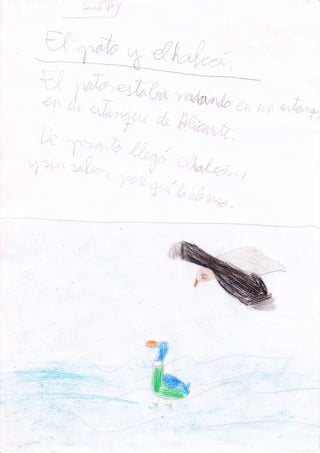 El pato y elhalcón
El pato estaba nadando en un
en un estanque de Alicante.
De pronto llegó elhalcón,
y sin saber por qué lo abrazo.